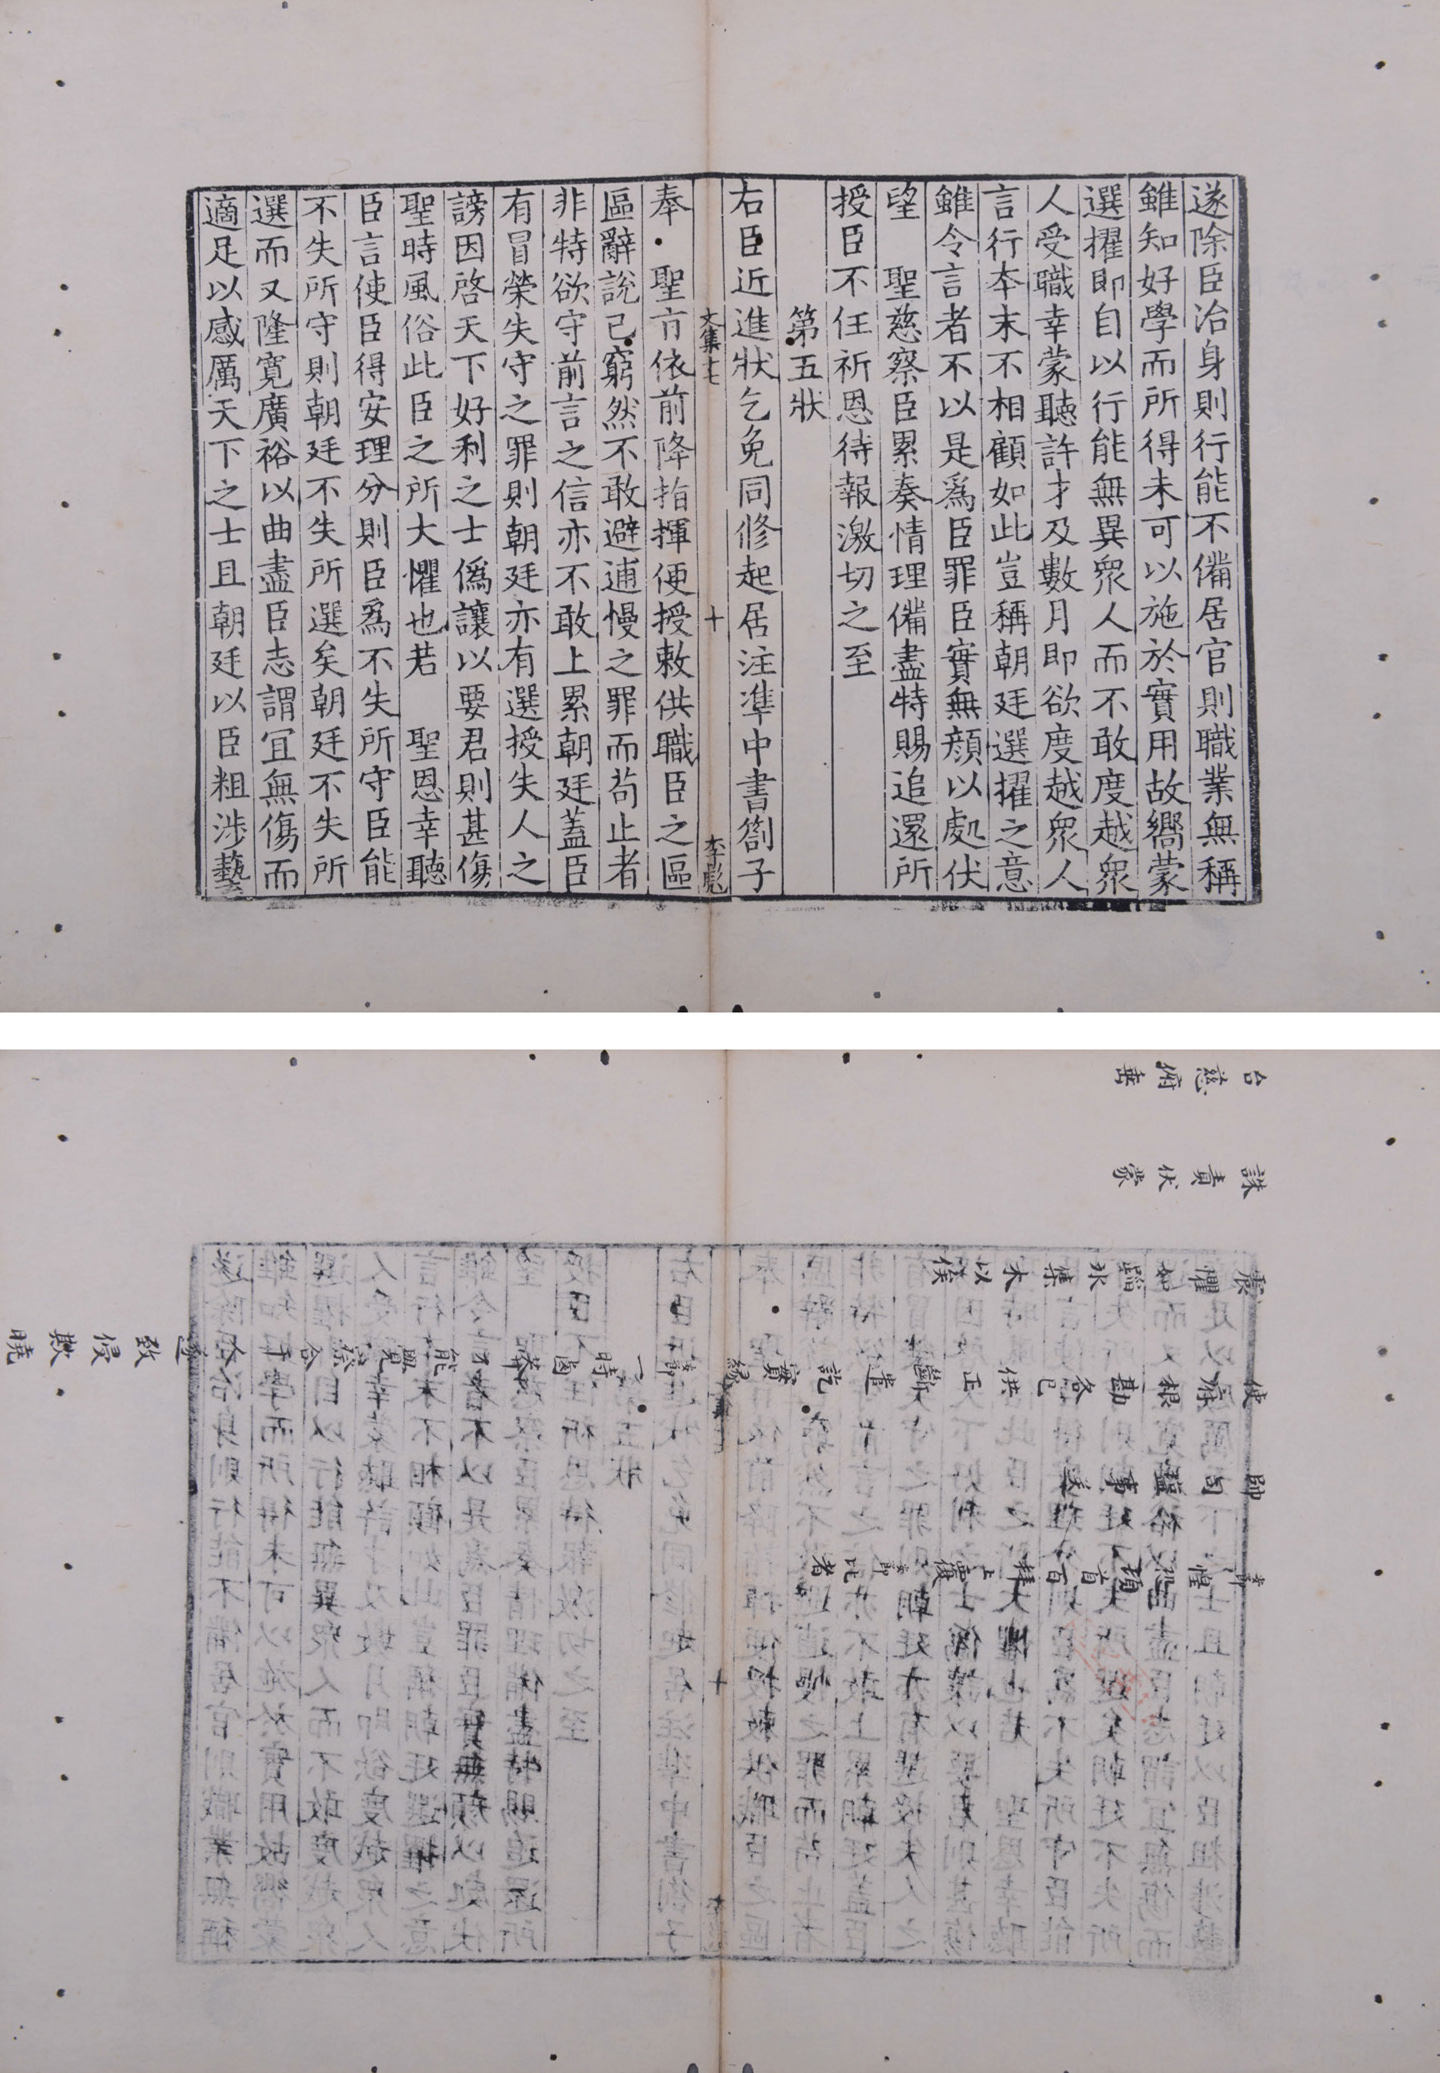 遂除臣治身則行能不備居官則職業無稱
雖知好學而所得未可以施於實用故嚮蒙
選擢即自以行能無異眾人而不敢度越眾
人受職幸蒙聽許才及數月即欲度越眾人
言行本末不相顧如此豈稱朝廷選擢之意
雖令言者不以是爲臣罪臣實無顏以處伏
望　聖慈察臣累奏情理備盡特賜追還所
授臣不任祈恩待報激切之至
第五狀
右臣近進狀乞免同修起居注準中書劄子
文集十七　十　李彪
奉　聖旨依前降指揮便授敕供職臣之區
區辭說已窮然不敢避逋慢之罪而苟止者
非特欲守前言之信亦不敢上累朝廷蓋臣
有冒榮失守之罪則朝廷亦有選授失人之
謗因啓天下好利之士僞讓以要君則甚傷
聖時風俗此臣之所大懼也若　聖恩幸聽
臣言使臣得安理分則臣爲不失所守臣能
不失所守則朝廷不失所選矣朝廷不失所
選而又隆寬廣裕以曲盡臣志謂宜無傷而
適足以感厲天下之士且朝廷以臣粗涉藝
惶恐頓首百拜上覆彥比者
帥司鹽事送
使府根勘各已供正斷遣訖實緣一時鹵莽不能覺察遂致侵欺曉
震懼如蹈氷集木以俟
誅責伏蒙
台慈俯垂